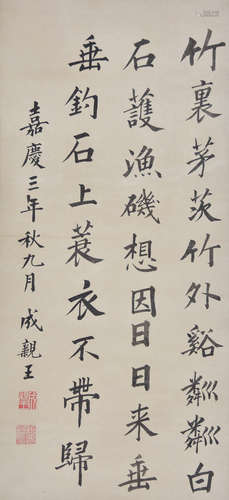 竹裏茅茨竹外谿粼粼白
石護漁磯想因日日来垂
垂釣石上蓑衣不帶歸
嘉慶三年秋九月 成親王